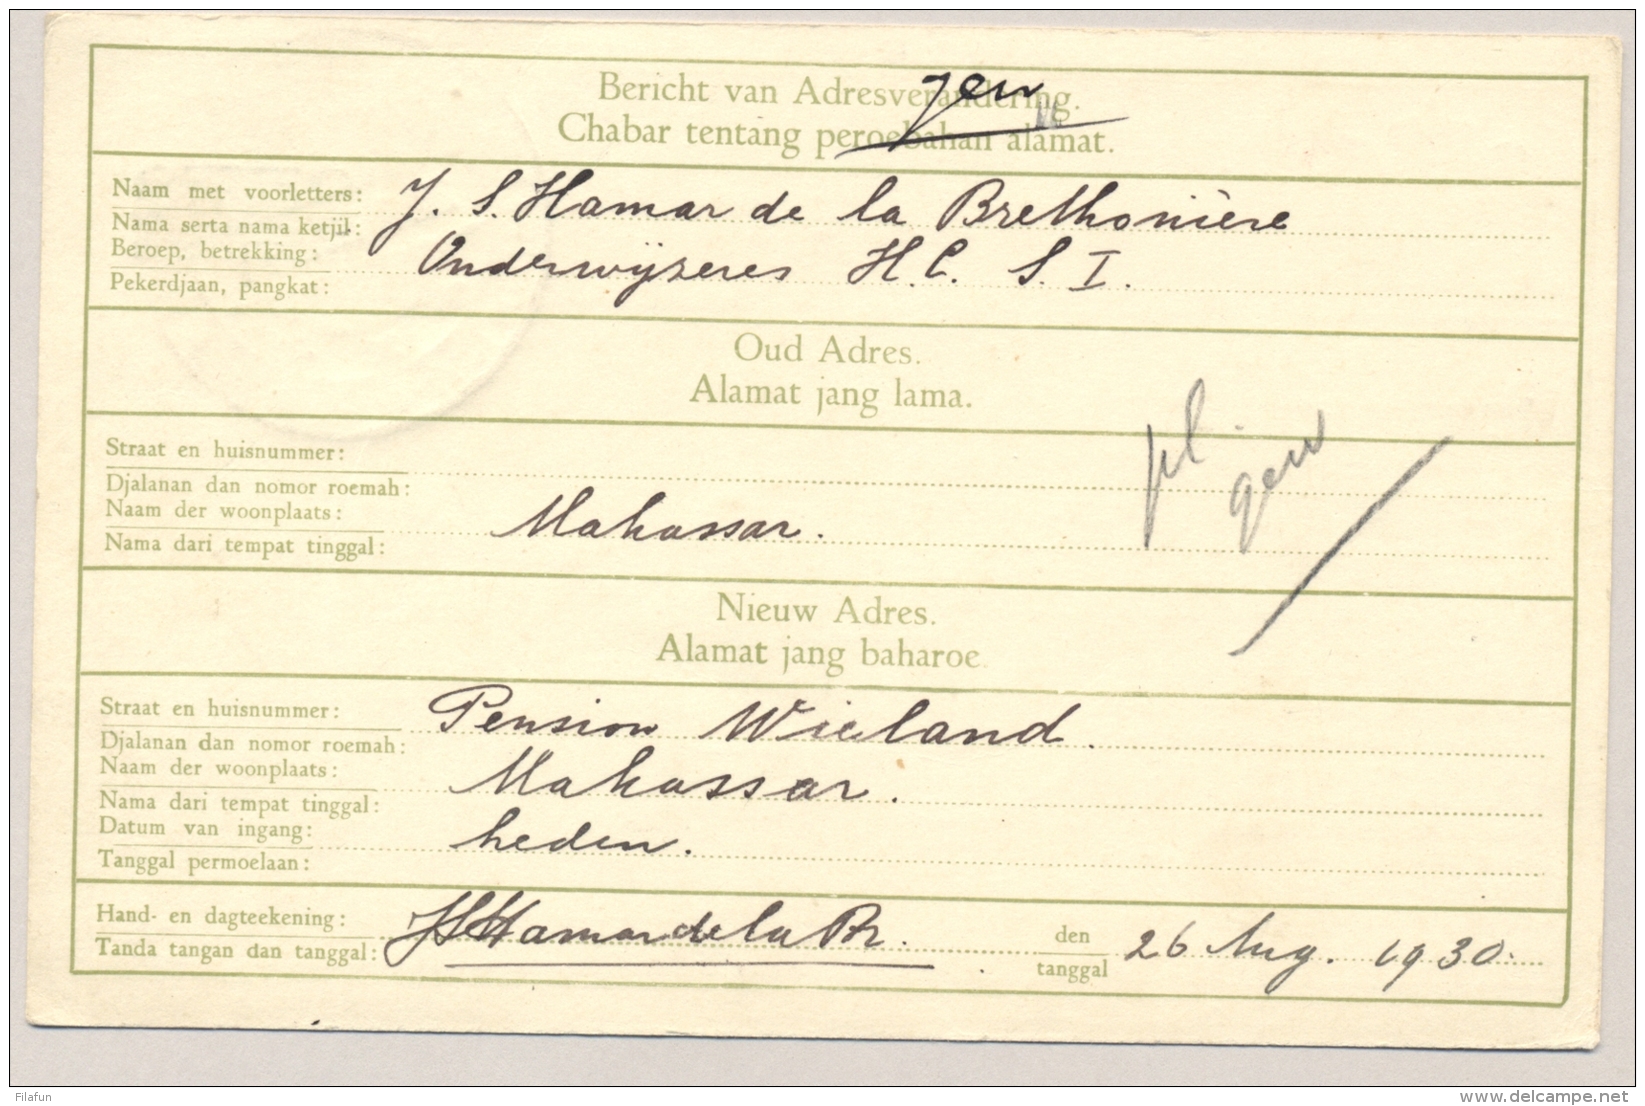 Bericht van Adresverandering.
gew
Chabar tentang peroebahan alamat.
Naam met voorletters:
Nama serta nama ketjil:
J. S. Hamar de la Brethonière
Beroep, betrekking:
Pekerdjaan, pangkat:
Onderwijzeres H. C. S. I.
Oud Adres.
Alamat jang lama.
Straat en huisnummer:
Djalanan dan nomor roemah:
Naam der woonplaats:
Nama dari tempat tinggal:
Makassar.
gew
Nieuw Adres.
Alamat jang baharoe.
Straat en huisnummer:
Djalanan dan nomor roemah:
Pension Wieland.
Naam der woonplaats:
Nama dari tempat tinggal:
Makassar.
Datum van ingang:
Tanggal permoelaan:
heden.
Hand- en dagteekening:
Tanda tangan dan tanggal:
JSHamar de la Br.
den
tanggal
26 Aug. 1930.
Filafun
www.delcampe.net